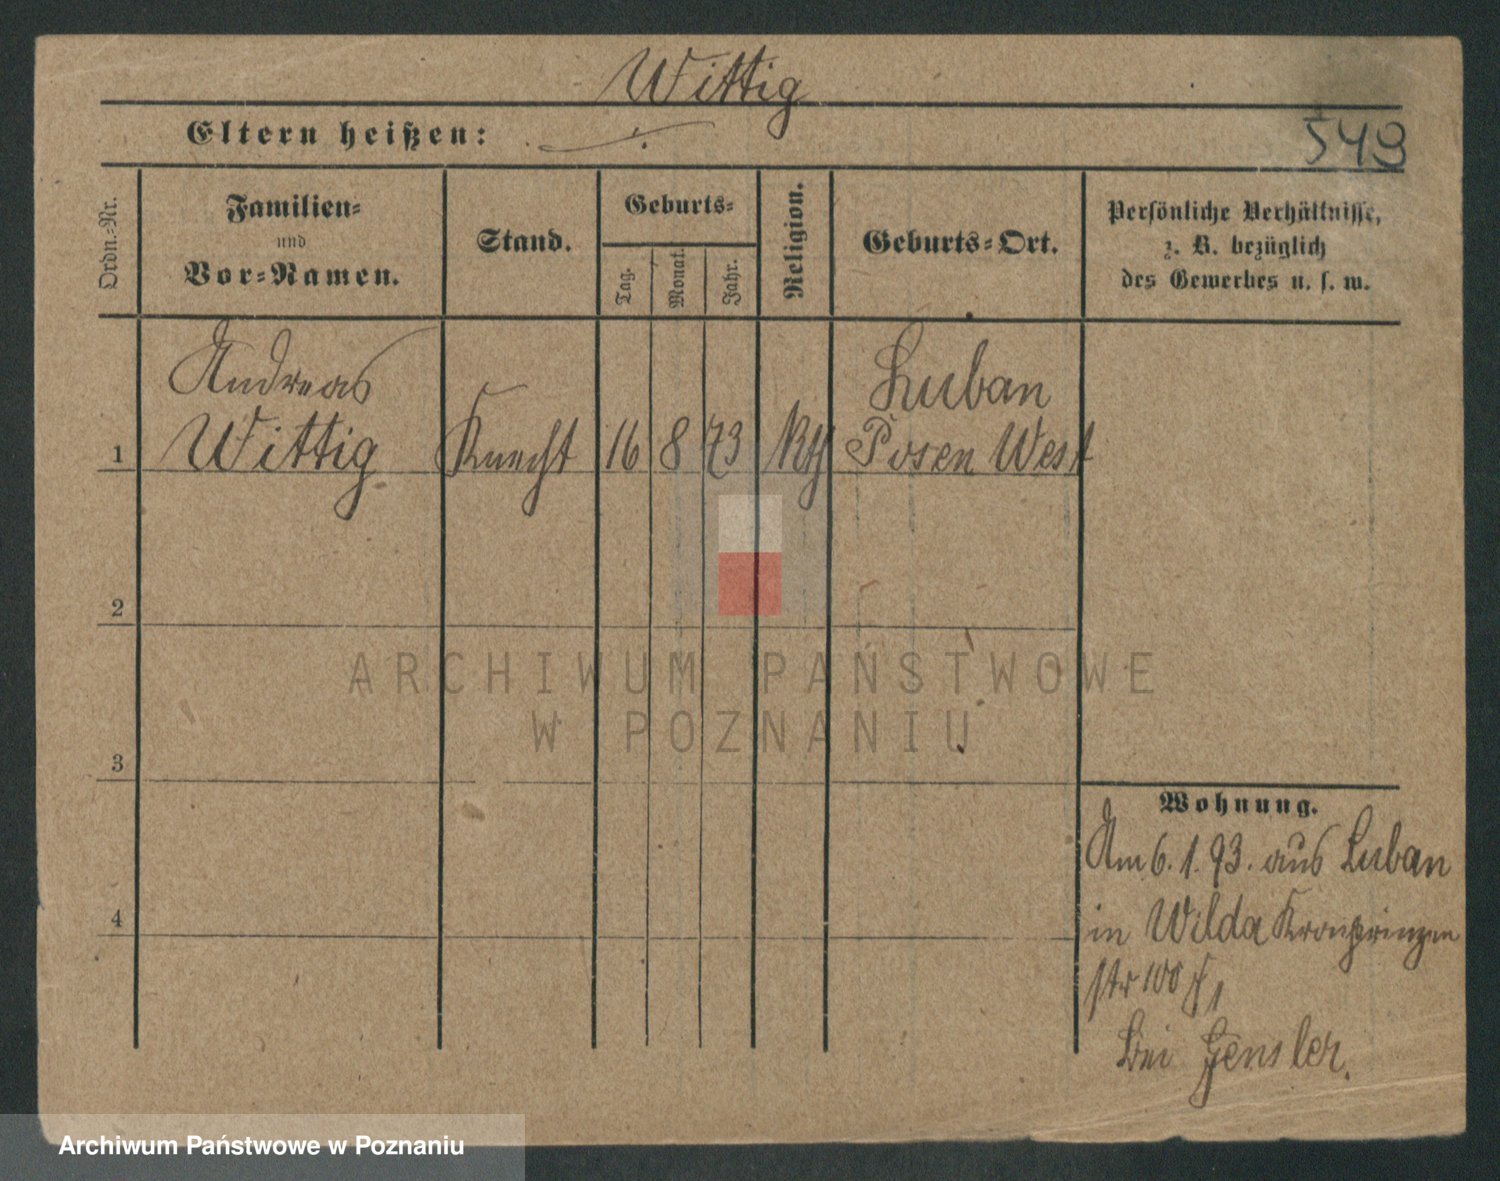 Wittig
Eltern heißen: ./.
549
Ordn.-Nr.
Familien-
und
Vor-Namen.
Stand.
Geburts-
Tag.
Monat.
Jahr.
Religion.
Geburts-Ort.
Persönliche Verhältnisse,
z. B. bezüglich
des Gewerbes u. s. w.
Andreas Luban
1 Wittig Knecht 16 8 73 Kth Posen West
2
3
4
Wohnung.
Am 6.1.93. aus Luban
in Wilda Kronprinzen
str 100
bei Gensler.
ARCHIWUM PAŃSTWOWE
W POZNANIU
Archiwum Państwowe w Poznaniu